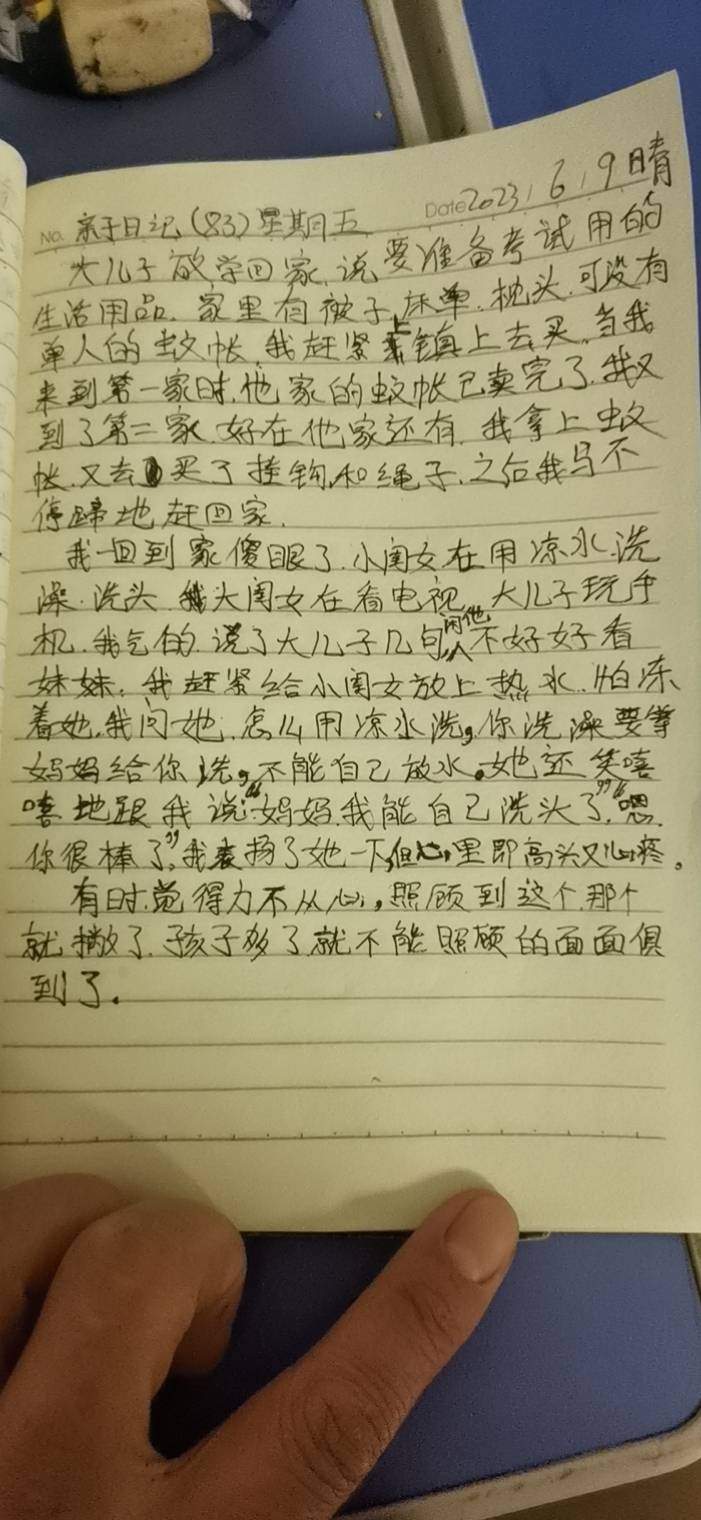 No. 亲子日记(83)星期五 Date 2023/6/9 晴
大儿子放学回家,说要准备考试用的
生活用品.家里有被子,床单.枕头.可没有
单人的蚊帐,我赶紧上镇上去买.当我
来到第一家时,他家的蚊帐已卖完了.我又
到了第二家.好在他家还有.我拿上蚊
帐.又去买了挂钩,和绳子.之后我马不
停蹄地赶回家.
我一回到家傻眼了.小闺女在用凉水洗
澡.洗头 大闺女在看电视.大儿子玩手
机.我气的.说了大儿子几句,不好好看
妹妹.我赶紧给小闺女放上热水.怕冻
着她.我问她.怎么用凉水洗,你洗澡要等
妈妈给你洗,不能自己放水。她还笑嘻
嘻地跟我说:“妈妈.我能自己洗头了,”“嗯.
你很棒了”,我表扬了她一下,但心里即高兴又心疼。
有时.觉得力不从心,照顾到这个.那个
就撇了.孩子多了就不能照顾的面面俱
到了.